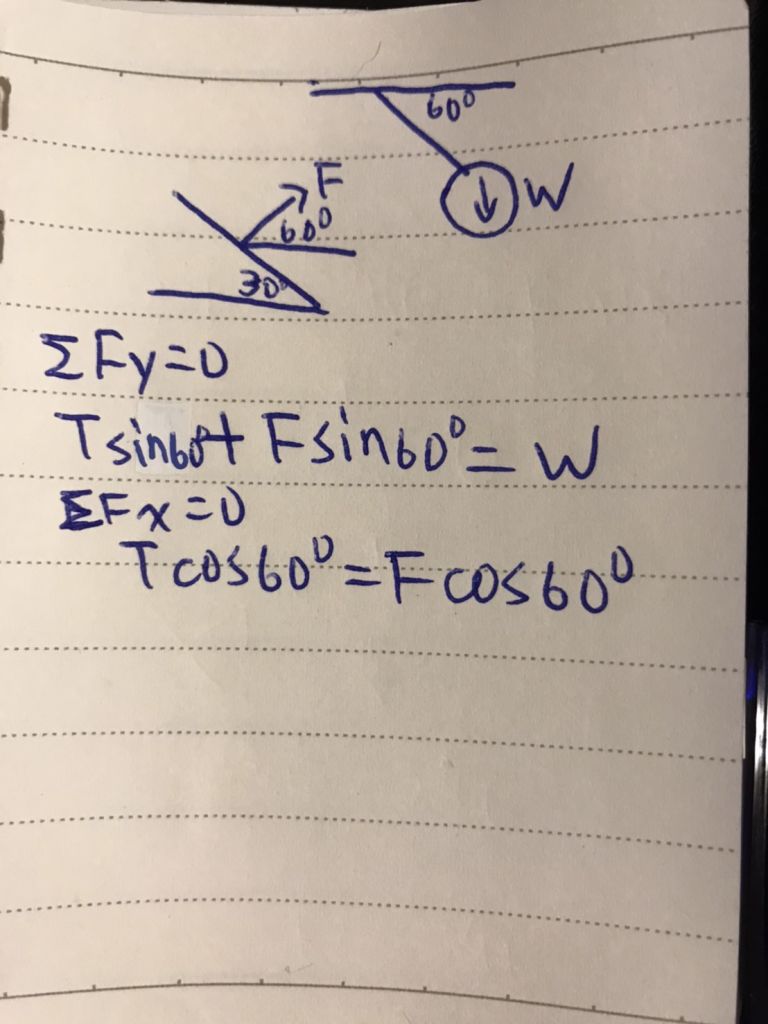 60⁰
W
F
60⁰
30⁰
ΣFy=0
Tsin60⁰+ Fsin60⁰= W
ΣFx=0
Tcos60⁰=Fcos60⁰